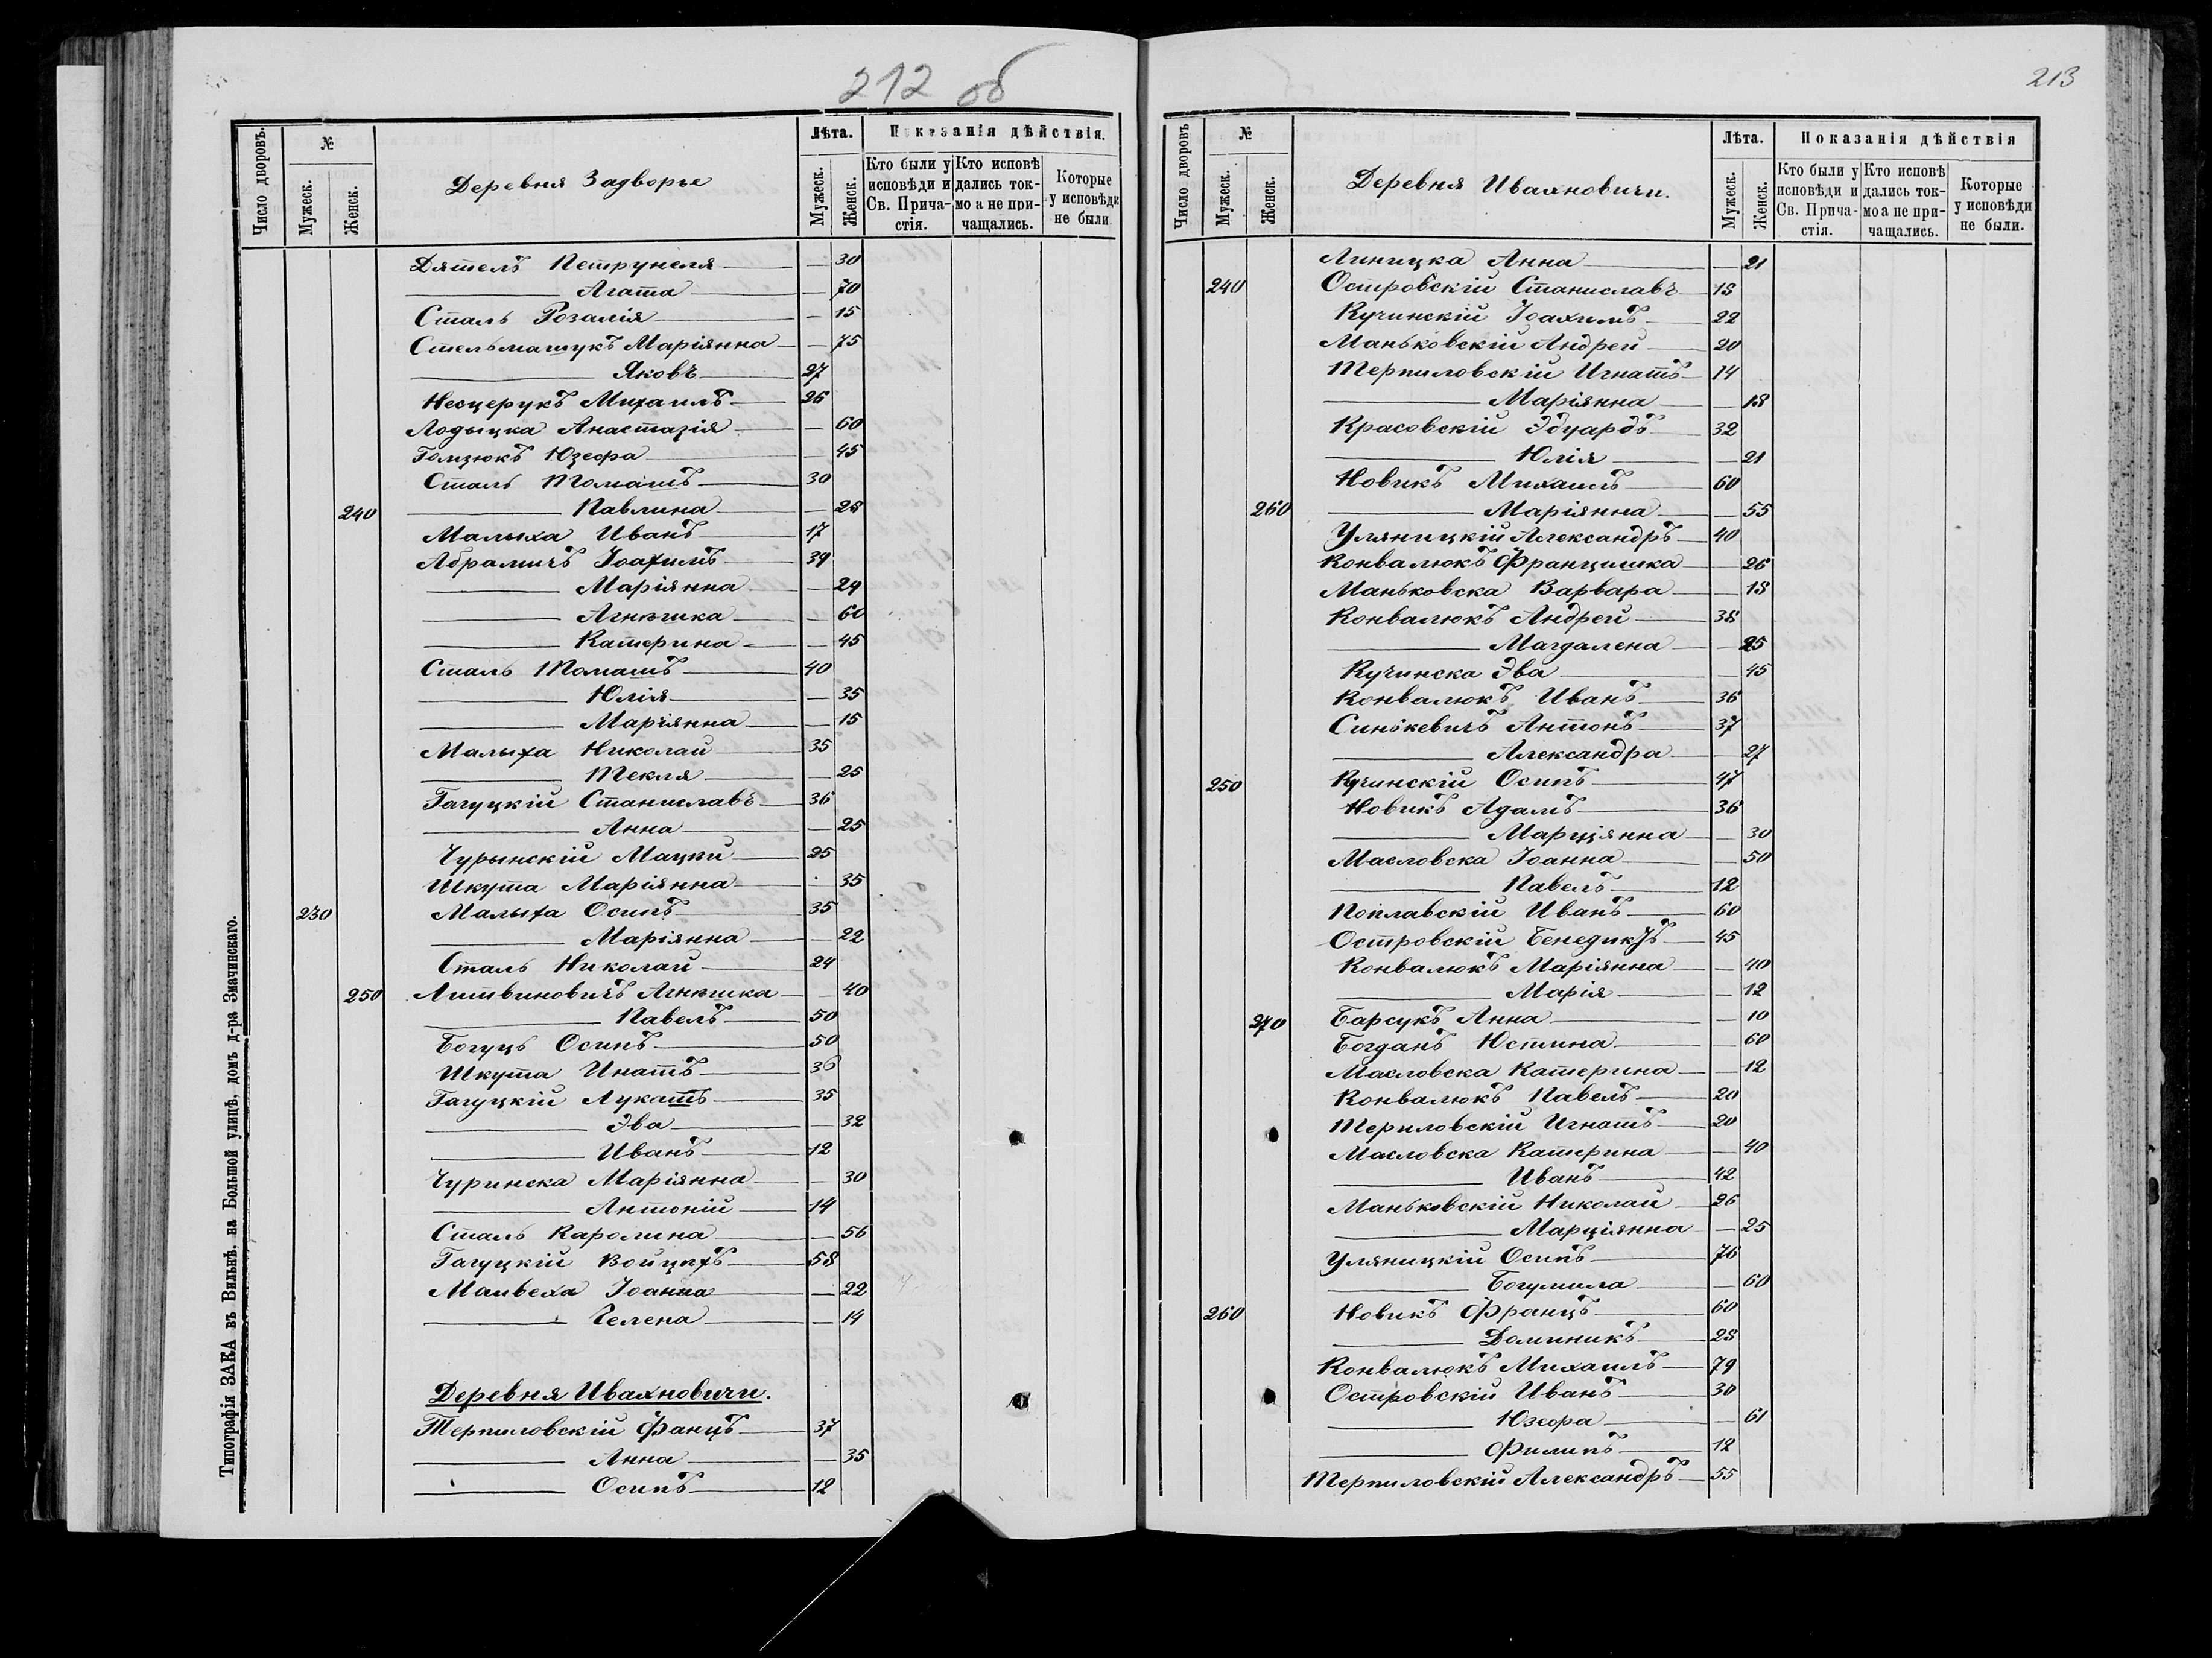 212 об
Число дворовъ.
№
Мужеск.
Женск.
Деревня Задворье
Лѣта.
Мужеск.
Женск.
Показанія дѣйствія.
Кто были у исповѣди и Св. Прича-стія.
Кто исповѣ дались ток-мо а не при-чащались.
Которые у исповѣди не были
Дятелъ Петрунеля — 30
Агата — 70
Сталь Розалія — 15
Стельмашукъ Маріянна — 75
Яковъ 27
Несцерукъ Михаилъ 26
Лодыцка Анастазія — 60
Гомзюкъ Юзефа — 45
Сталь Томашъ 30
240 Павлина — 28
Малыха Иванъ 17
Абрамичъ Іоахимъ 39
Маріянна — 24
Агнѣшка — 60
Катерина — 45
Сталь Томашъ 40
Юлія — 35
Маріянна — 15
Малыха Николай 35
Текля — 25
Гагуцкій Станиславъ 36
Анна — 25
Чурынскій Мацѣй 25
Шкута Маріянна 35
230 Малыха Осипъ 35
Маріянна — 22
Сталь Николай 24
250 Литвиновичъ Агнѣшка — 40
Павелъ 50
Богуць Осипъ 50
Шкута Инатъ 36
Гагуцкій Лукашъ 35
Эва — 32
Иванъ 12
Чуринска Маріянна — 30
Антоній 14
Сталь Каролина — 56
Гагуцкій Войцѣхъ 58
Маивеха Іоанна — 22
Гелена — 14
Деревня Иваяновичи.
Терпиловскій Фанцъ 37
Анна — 35
Осипъ 12
Типографія ЗАКА въ Вильнѣ, на Большой улицѣ, домъ д-ра Змачинскаго.
213
Число дворовъ
№
Мужеск.
Женск.
Деревня Иваяновичи.
Лѣта.
Мужеск.
Женск.
Показанія дѣйствія
Кто были у исповѣди и Св. Прича-стія.
Кто исповѣ дались ток-мо а не при-чащались.
Которые у исповѣди не были.
Линицка Анна — 21
240 Островскій Станиславъ 18
Кучинскій Іоахимъ 22
Маньковскій Андрей 20
Терпиловскій Игнатъ 14
Маріянна — 18
Красовскій Эдуардъ 32
Юлія — 21
Новикъ Михаилъ 60
260 Маріянна — 55
Уляницкій Александръ 40
Конвалюкъ Францишка — 26
Маньковска Варвара — 18
Конвалюкъ Андрей 38
Магдалена — 25
Кучинска Эва — 45
Конвалюкъ Иванъ 36
Синькевичъ Антонъ 37
Александра — 27
250 Кучинскій Осипъ 47
Новикъ Адамъ 36
Марціянна — 30
Масловска Іоанна — 50
Павелъ 12
Поплавскій Иванъ 60
Островскій Бенедиктъ 45
Конвалюкъ Маріянна — 40
Марія — 12
270 Барсукъ Анна — 10
Богданъ Юстина — 60
Масловска Катерина — 12
Конвалюкъ Павелъ 20
Териловскій Игнатъ 20
Масловска Катерина — 40
Иванъ 42
Маньковскій Николай 26
Марціянна — 25
Уляницкій Осипъ 76
Богумила — 60
260 Новикъ Францъ 60
Доминикъ 28
Конвалюкъ Михаилъ 79
Островскій Иванъ 30
Юзефа — 61
Филипъ 12
Терпиловскій Александръ 55